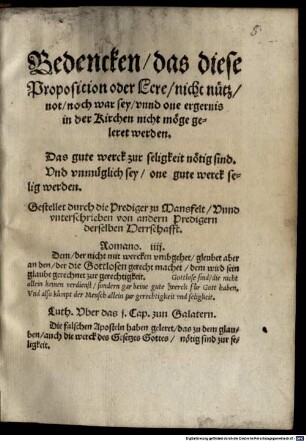 Bedencken/das diese
Proposition oder Lere/nicht nütz/
not/noch war sey/vnnd one ergernis
in der Kirchen nicht möge ge-
leret werden.
Das gute werck zur seligkeit nötig sind.
Vnd vnmüglich sey/one gute werck se-
lig werden.
Gestellet durch die Prediger zu Mansfelt/Vnnd
vnterschrieben von andern Predigern
derselben Herrschafft.
Romano. iiij.
Dem/der nicht mit wercken vmbgehet/gleubet aber
an den/der die Gottlosen gerecht machet/dem wird sein
glaube gerechnet zur gerechtigkeit. Gottlose sind/die nicht
allein keinen verdienst/sondern gar keine gute werck für Gott haben.
Vnd also kümpt der Mensch allein zur gerechtigkeit vnd seligkeit.
Luth. Vber das j. Cap. zun Galatern.
Die falschen Aposteln haben geleret/das zu dem glau-
ben/auch die werck des Gesetzes Gottes/nötig sind zur se-
ligkeit.